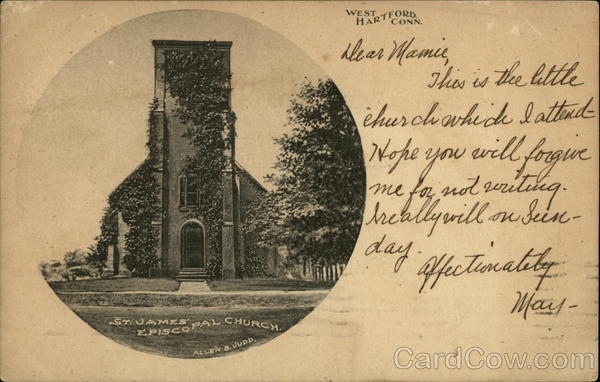 WEST HARTFORD,
CONN.
Dear Mamie,
This is the little
church which I attend-
Hope you will forgive
me for not writing.
I really will on Sun-
day.
Affectionately
May-
ST. JAMES' EPISCOPAL CHURCH.
ALLEN B. JUDD.
CardCow.com